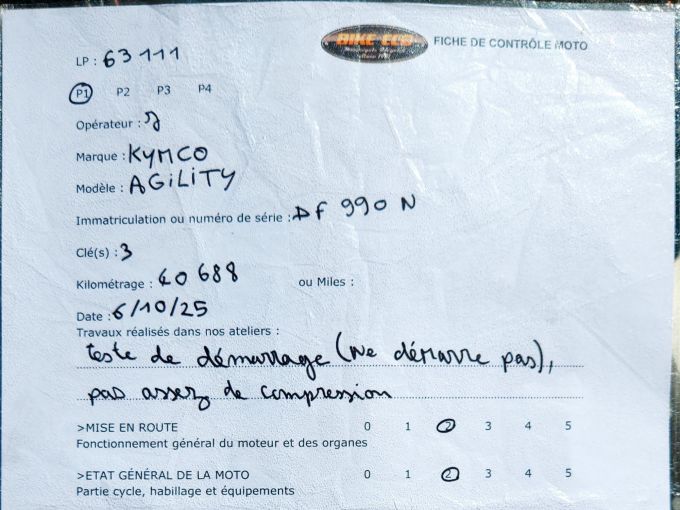 BIKE ECO
FICHE DE CONTRÔLE MOTO
LP : 63111
P1 P2 P3 P4
Opérateur :
Marque : KYMCO
Modèle : AGiLiTY
Immatriculation ou numéro de série : Df 990 N
Clé(s) : 3
Kilométrage : 40 688 ou Miles :
Date : 6/10/25
Travaux réalisés dans nos ateliers :
teste de démarrage (ne démarre pas),
pas assez de compression
>MISE EN ROUTE 0 1 2 3 4 5
Fonctionnement général du moteur et des organes
>ETAT GÉNÉRAL DE LA MOTO 0 1 2 3 4 5
Partie cycle, habillage et équipements